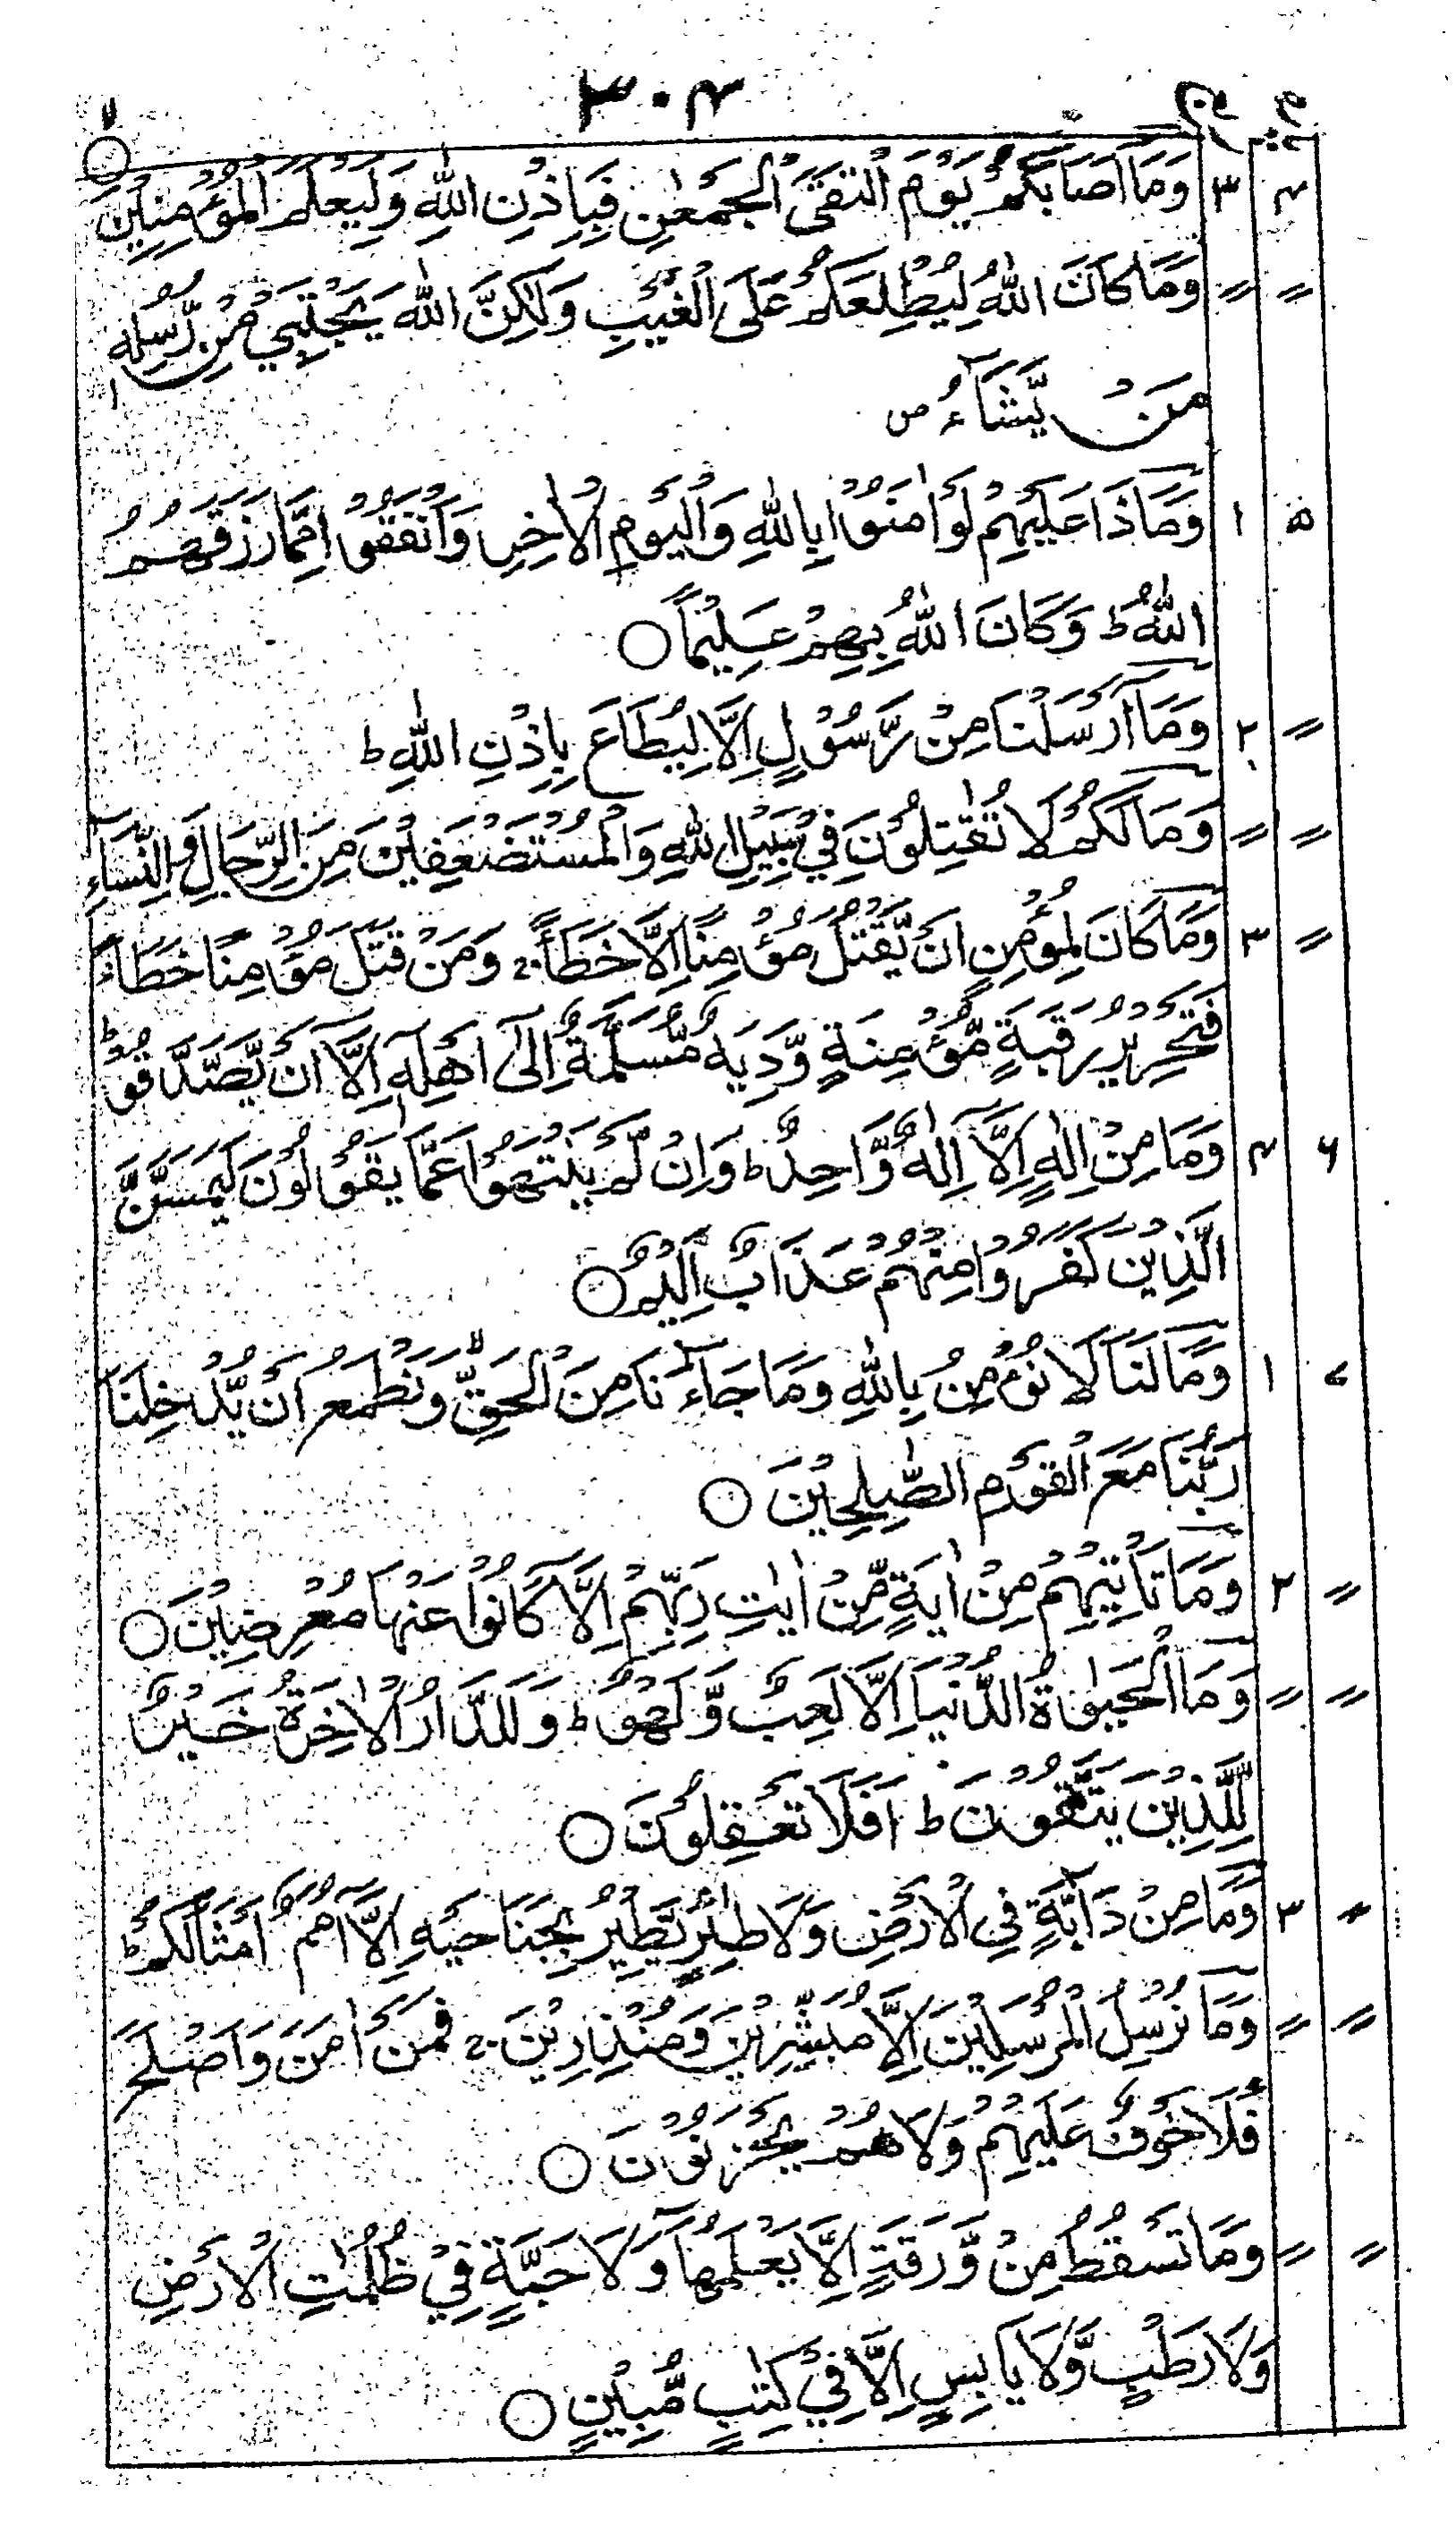 ۳۰۴
۴ ۳ وَمَا اَصَابَكُمْ يَوْمَ الْتَقَى الْجَمْعٰنِ فَبِاِذْنِ اللّٰهِ وَلِيَعْلَمَ الْمُؤْمِنِيْنَ
〃 〃 وَمَا كَانَ اللّٰهُ لِيُطْلِعَكُمْ عَلَى الْغَيْبِ وَلٰكِنَّ اللّٰهَ يَجْتَبِيْ مِنْ رُّسُلِهٖ
مَنْ يَّشَآءُ ص
۵ ۱ وَمَاذَا عَلَيْهِمْ لَوْ اٰمَنُوْا بِاللّٰهِ وَالْيَوْمِ الْاٰخِرِ وَاَنْفَقُوْا مِمَّا رَزَقَهُمُ
اللّٰهُ ط وَكَانَ اللّٰهُ بِهِمْ عَلِيْمًا ○
〃 ۲ وَمَآ اَرْسَلْنَا مِنْ رَّسُوْلٍ اِلَّا لِيُطَاعَ بِاِذْنِ اللّٰهِ ط
〃 〃 وَمَا لَكُمْ لَا تُقٰتِلُوْنَ فِيْ سَبِيْلِ اللّٰهِ وَالْمُسْتَضْعَفِيْنَ مِنَ الرِّجَالِ وَالنِّسَآءِ
〃 ۳ وَمَا كَانَ لِمُؤْمِنٍ اَنْ يَّقْتُلَ مُؤْمِنًا اِلَّا خَطَأً ج وَمَنْ قَتَلَ مُؤْمِنًا خَطَاءً
فَتَحْرِيْرُ رَقَبَةٍ مُّؤْمِنَةٍ وَّدِيَةٌ مُّسَلَّمَةٌ اِلٰٓى اَهْلِهٖٓ اِلَّآ اَنْ يَّصَّدَّقُوْا ط
۶ ۴ وَمَا مِنْ اِلٰهٍ اِلَّآ اِلٰهٌ وَّاحِدٌ ط وَاِنْ لَّمْ يَنْتَهُوْا عَمَّا يَقُوْلُوْنَ لَيَمَسَّنَّ
الَّذِيْنَ كَفَرُوْا مِنْهُمْ عَذَابٌ اَلِيْمٌ ○
۷ ۱ وَمَا لَنَا لَا نُؤْمِنُ بِاللّٰهِ وَمَا جَآءَنَا مِنَ الْحَقِّ وَنَطْمَعُ اَنْ يُّدْخِلَنَا
رَبُّنَا مَعَ الْقَوْمِ الصّٰلِحِيْنَ ○
〃 ۲ وَمَا تَاْتِيْهِمْ مِنْ اٰيَةٍ مِّنْ اٰيٰتِ رَبِّهِمْ اِلَّا كَانُوْا عَنْهَا مُعْرِضِيْنَ ○
〃 〃 وَمَا الْحَيٰوةُ الدُّنْيَا اِلَّا لَعِبٌ وَّلَهْوٌ ط وَلَلدَّارُ الْاٰخِرَةُ خَيْرٌ
لِّلَّذِيْنَ يَتَّقُوْنَ ط اَفَلَا تَعْقِلُوْنَ ○
〃 ۳ وَمَا مِنْ دَآبَّةٍ فِي الْاَرْضِ وَلَا طٰٓئِرٍ يَّطِيْرُ بِجَنَاحَيْهِ اِلَّآ اُمَمٌ اَمْثَالُكُمْ ط
〃 〃 وَمَا نُرْسِلُ الْمُرْسَلِيْنَ اِلَّا مُبَشِّرِيْنَ وَمُنْذِرِيْنَ ج فَمَنْ اٰمَنَ وَاَصْلَحَ
فَلَا خَوْفٌ عَلَيْهِمْ وَلَا هُمْ يَحْزَنُوْنَ ○
〃 〃 وَمَا تَسْقُطُ مِنْ وَّرَقَةٍ اِلَّا يَعْلَمُهَا وَلَا حَبَّةٍ فِيْ ظُلُمٰتِ الْاَرْضِ
وَلَا رَطْبٍ وَّلَا يَابِسٍ اِلَّا فِيْ كِتٰبٍ مُّبِيْنٍ ○